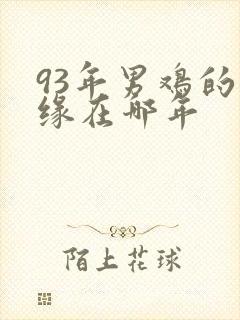 93年男鸡的
缘在哪年
陌上花球